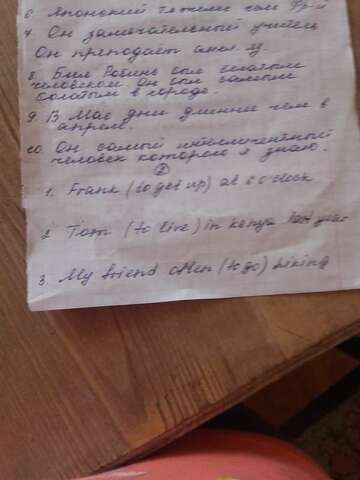 6 Японский тяжелее чем Фр-й
7. Он замечательный учитель
Он преподаёт англ яз.
8. Бил Робинс был богатым
человеком Он был самым
богатым в городе.
9. В Мае дни длиннее чем в
апреле.
10. Он самый интеллигентный
человек которого я знаю.
2
1. Frank (to get up) at 6 o'clock
2 Tom (to live) in Kenya last year
3 My friend often (to go) hiking